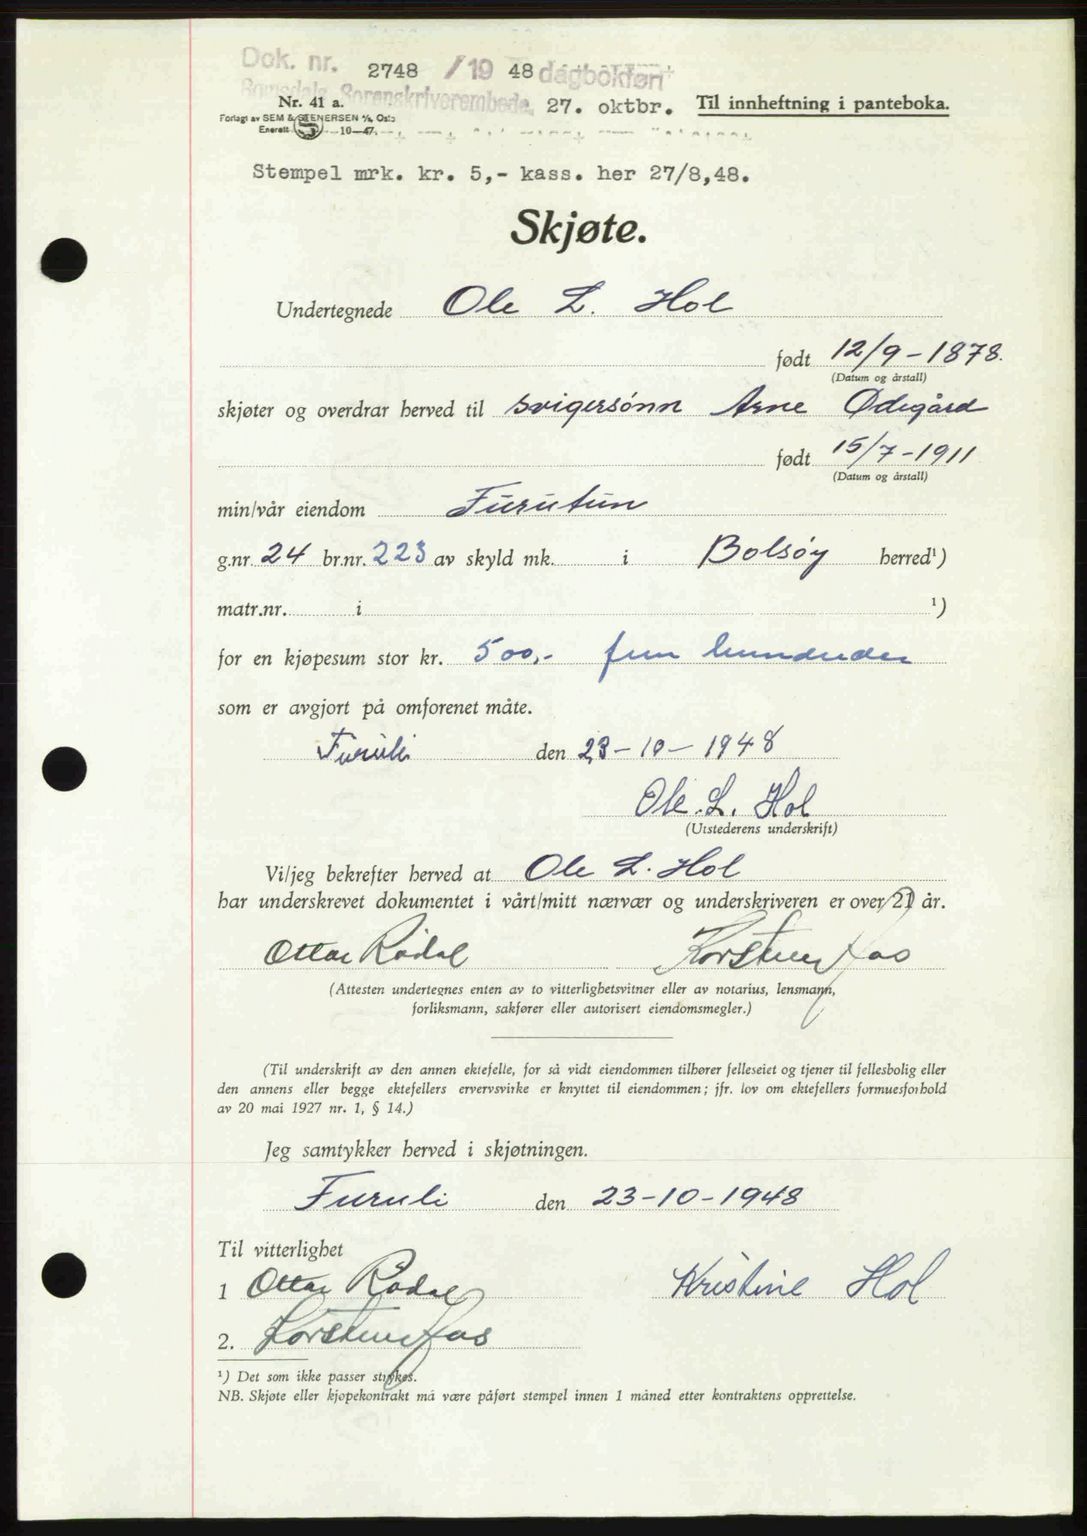 Dok. nr. 2748 /19 48 dagbokført
Romsdals Sorenskriverembede, 27. oktbr.
Nr. 41 a.
Til innheftning i panteboka.
Forlagt av SEM & STENERSEN A/S, Oslo
Enerett 10—47.
Stempel mrk. kr. 5,- kass. her 27/8,48.
Skjøte.
Undertegnede Ole L. Hol
født 12/9-1878.
(Datum og årstall)
skjøter og overdrar herved til svigersønn Arne Ødegård
født 15/7-1911
(Datum og årstall)
min/vår eiendom Furutun
g.nr. 24 br.nr. 223 av skyld mk. i Bolsøy herred¹)
matr.nr. i ¹)
for en kjøpesum stor kr. 500,- fem hundreder
som er avgjort på omforenet måte.
Furuli den 23-10-1948
Ole. L. Hol
(Utstederens underskrift)
Vi/jeg bekrefter herved at Ole L. Hol
har underskrevet dokumentet i vårt/mitt nærvær og underskriveren er over 21 år.
Ottar Rødal
(Attesten undertegnes enten av to vitterlighetsvitner eller av notarius, lensmann,
forliksmann, sakfører eller autorisert eiendomsmegler.)
(Til underskrift av den annen ektefelle, for så vidt eiendommen tilhører felleseiet og tjener til fellesbolig eller
den annens eller begge ektefellers ervervsvirke er knyttet til eiendommen; jfr. lov om ektefellers formuesforhold
av 20 mai 1927 nr. 1, § 14.)
Jeg samtykker herved i skjøtningen.
Furuli den 23-10-1948
Til vitterlighet
1 Ottar Rødal Kristine Hol
2.
¹) Det som ikke passer strykes.
NB. Skjøte eller kjøpekontrakt må være påført stempel innen 1 måned etter kontraktens opprettelse.